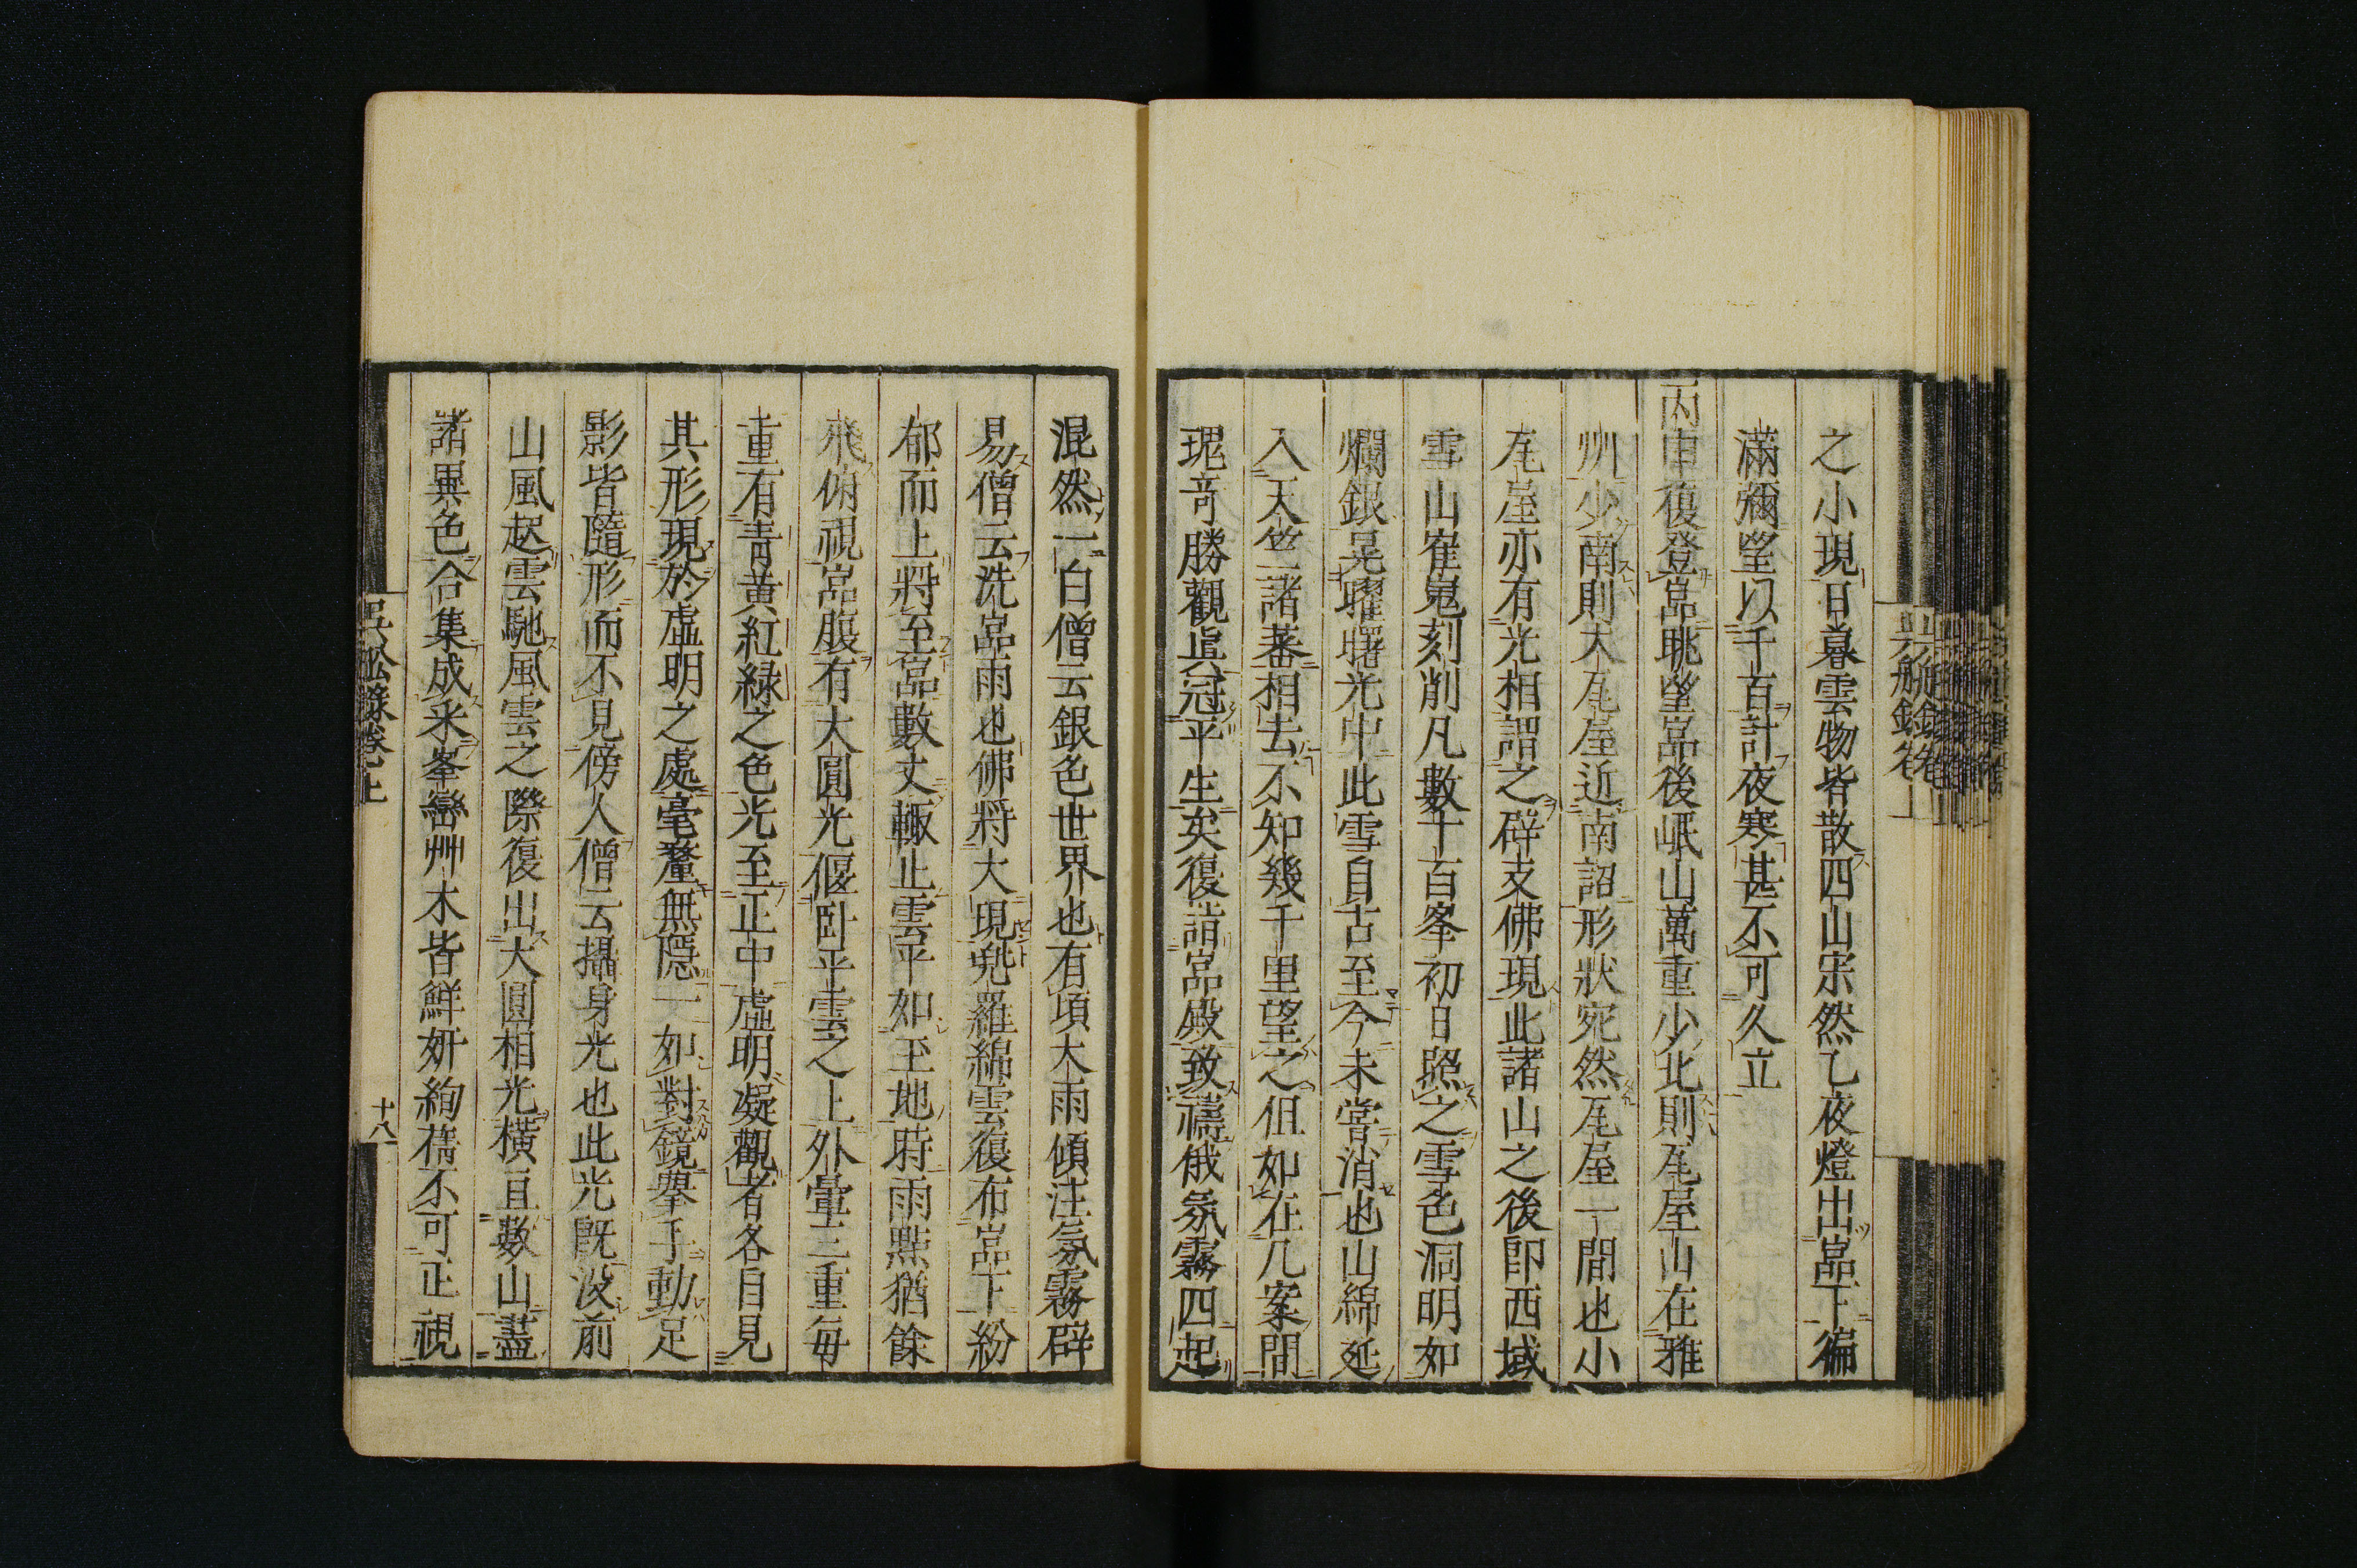 之小現日暮雲物皆散四山宋然乙夜燈出嵓下徧
滿彌望以千百計夜寒甚不可久立
丙申復登嵓眺望嵓後岷山萬重少北則瓦屋山在雅
州少南則大瓦屋近南詔形狀宛然瓦屋一間也小
瓦屋亦有光相謂之辟支佛現此諸山之後卽西域
雪山崔嵬刻削凡數十百峯初日照之雪色洞明如
爛銀晃曜曙光中此雪自古至今未嘗消也山綿延
入天竺諸蕃相去不知幾千里望之但如在几案間
瑰奇勝觀眞冠平生矣復詣嵓殿致禱俄氛霧四起
混然一白僧云銀色世界也有頃大雨傾注氛霧辟
易僧云洗嵓雨也佛將大現兜羅綿雲復布嵓下紛
郁而上將至嵓數丈輙止雲平如玉地時雨點猶餘
飛俯視嵓腹有大圓光偃卧平雲之上外暈三重每
重有青黃紅綠之色光至正中虛明凝觀者各自見
其形現於虛明之處毫釐無隱一如對鏡擧手動足
影皆隨形而不見傍人僧云攝身光也此光旣沒前
山風起雲馳風雲之際復出大圓相光橫亘數山盡
諸異色合集成采峯巒艸木皆鮮姸絢蒨不可正視
吳舩錄卷上
十八